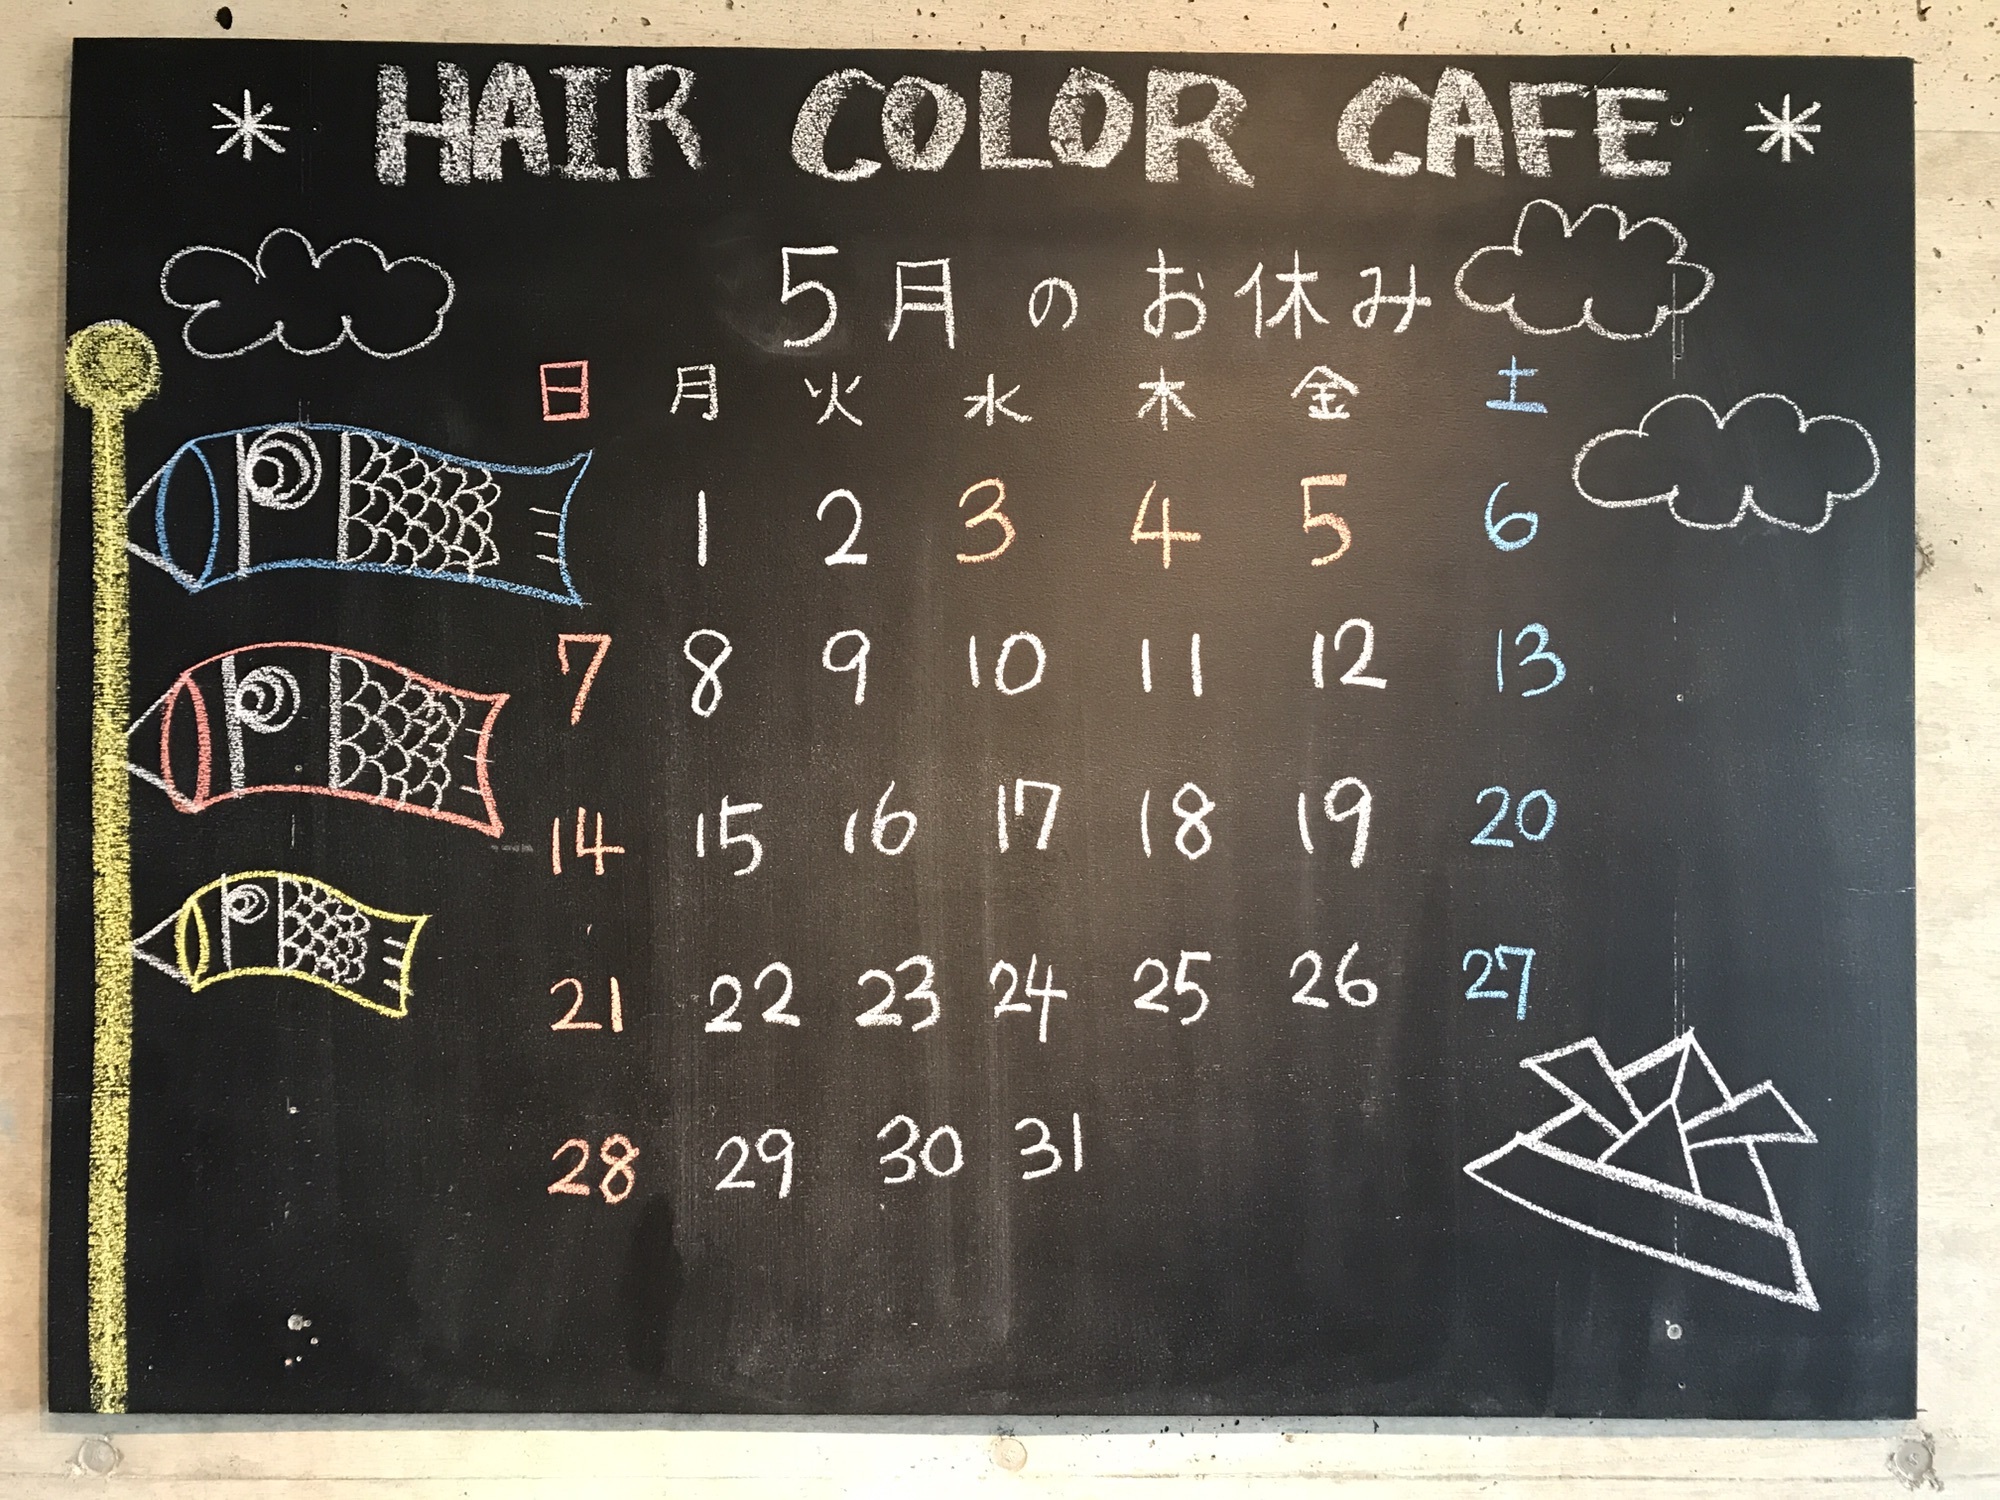 * HAIR COLOR CAFE *
5月のお休み
日 月 火 水 木 金 土
1 2 3 4 5 6
7 8 9 10 11 12 13
14 15 16 17 18 19 20
21 22 23 24 25 26 27
28 29 30 31